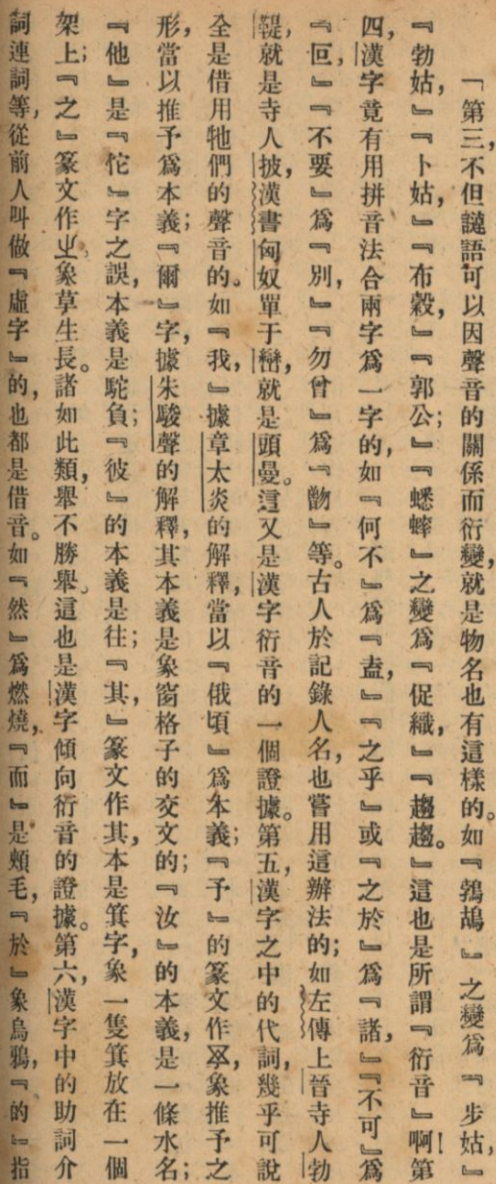 「第三,不但謎語可以因聲音的關係而衍變,就是物名也有這樣的。如『鶉鴣』之變爲『步姑,』
『勃姑,』『卜姑,』『布穀,』『郭公;』『蟋蟀』之變爲『促織,』『趨趨。』這也是所謂『衍音』啊!第
四,漢字竟有用拼音法合兩字爲一字的,如『何不』爲『盍,』『之乎』或『之於』爲『諸,』『不可』爲
『叵,』『不要』爲『別,』『勿曾』爲『朆』等。古人於記錄人名,也嘗用這辦法的;如左傳上晉寺人勃
鞮,就是寺人披,漢書匈奴單于巒,就是頭曼。這又是漢字衍音的一個證據。第五,漢字之中的代詞,幾乎可說
全是借用牠們的聲音的。如『我,』據章太炎的解釋,當以『俄頃』爲本義;『予』的篆文作,象推予之
形,當以推予爲本義;『爾』字,據朱駿聲的解釋,其本義是象窗格子的交文的;『汝』的本義,是一條水名;
『他』是『佗』字之誤,本義是駝負;『彼』的本義是往;『其,』篆文作其,本是箕字,象一隻箕放在一個
架上;『之』篆文作㞢,象草生長。諸如此類,舉不勝舉。這也是漢字傾向衍音的證據。第六,漢字中的助詞介
詞連詞等,從前人叫做『虛字』的,也都是借音。如『然』爲燃燒,『而』是頰毛,『於』象烏鴉,『的』指